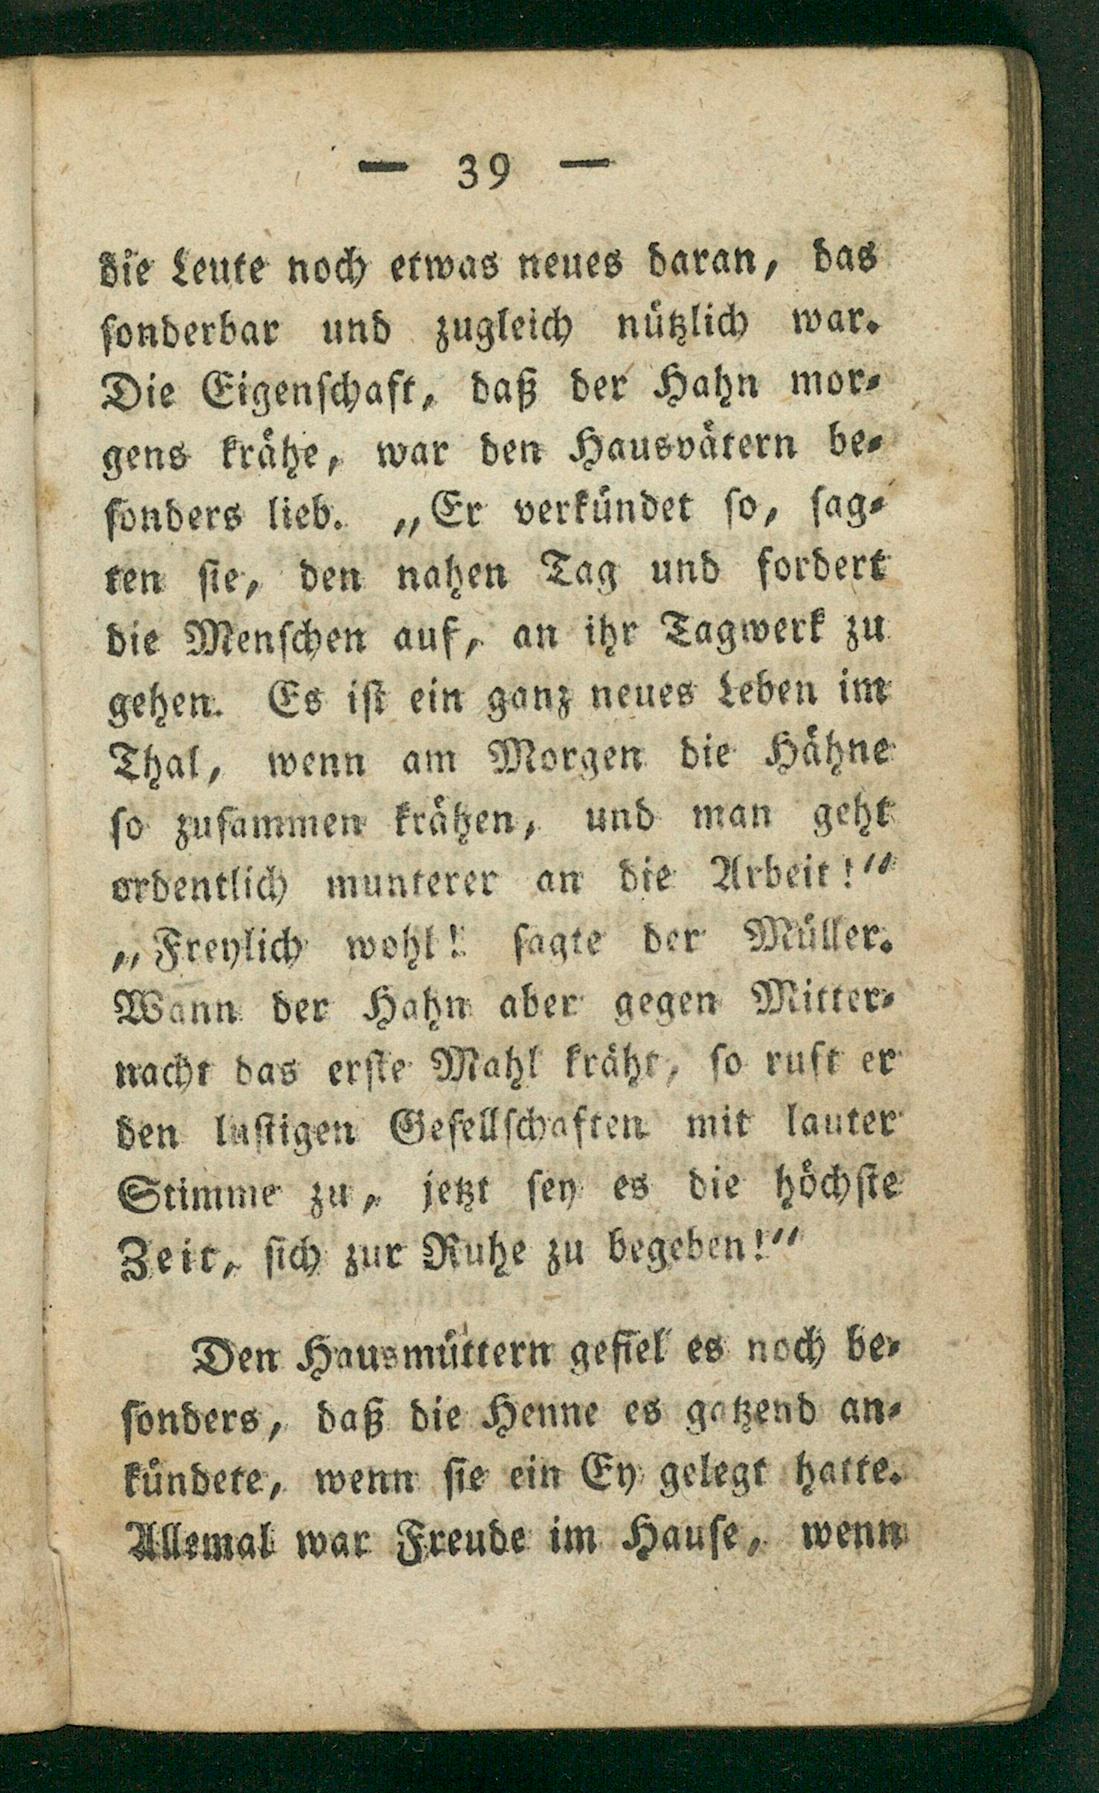 — 39 —
die Leute noch etwas neues daran, das
ſonderbar und zugleich nützlich war.
Die Eigenſchaft, daß der Hahn mor⸗
gens kraͤhe, war den Hausvaͤtern be⸗
ſonders lieb. „Er verkuͤndet ſo, ſag⸗
ten ſie, den nahen Tag und fordert
die Menſchen auf, an ihr Tagwerk zu
gehen. Es iſt ein ganz neues Leben im
Thal, wenn am Morgen die Haͤhne
ſo zuſammen kraͤhen, und man geht
ordentlich munterer an die Arbeit!“
„Freylich wohl! ſagte der Muͤller.
Wann der Hahn aber gegen Mitter⸗
nacht das erſte Mahl kraͤht, ſo ruft er
den luſtigen Geſellſchaften mit lauter
Stimme zu, jetzt ſey es die hoͤchſte
Zeit, ſich zur Ruhe zu begeben!“
Den Hausmuͤttern gefiel es noch be⸗
ſonders, daß die Henne es gatzend an⸗
kuͤndete, wenn ſie ein Ey gelegt hatte.
Allemal war Freude im Hauſe, wenn